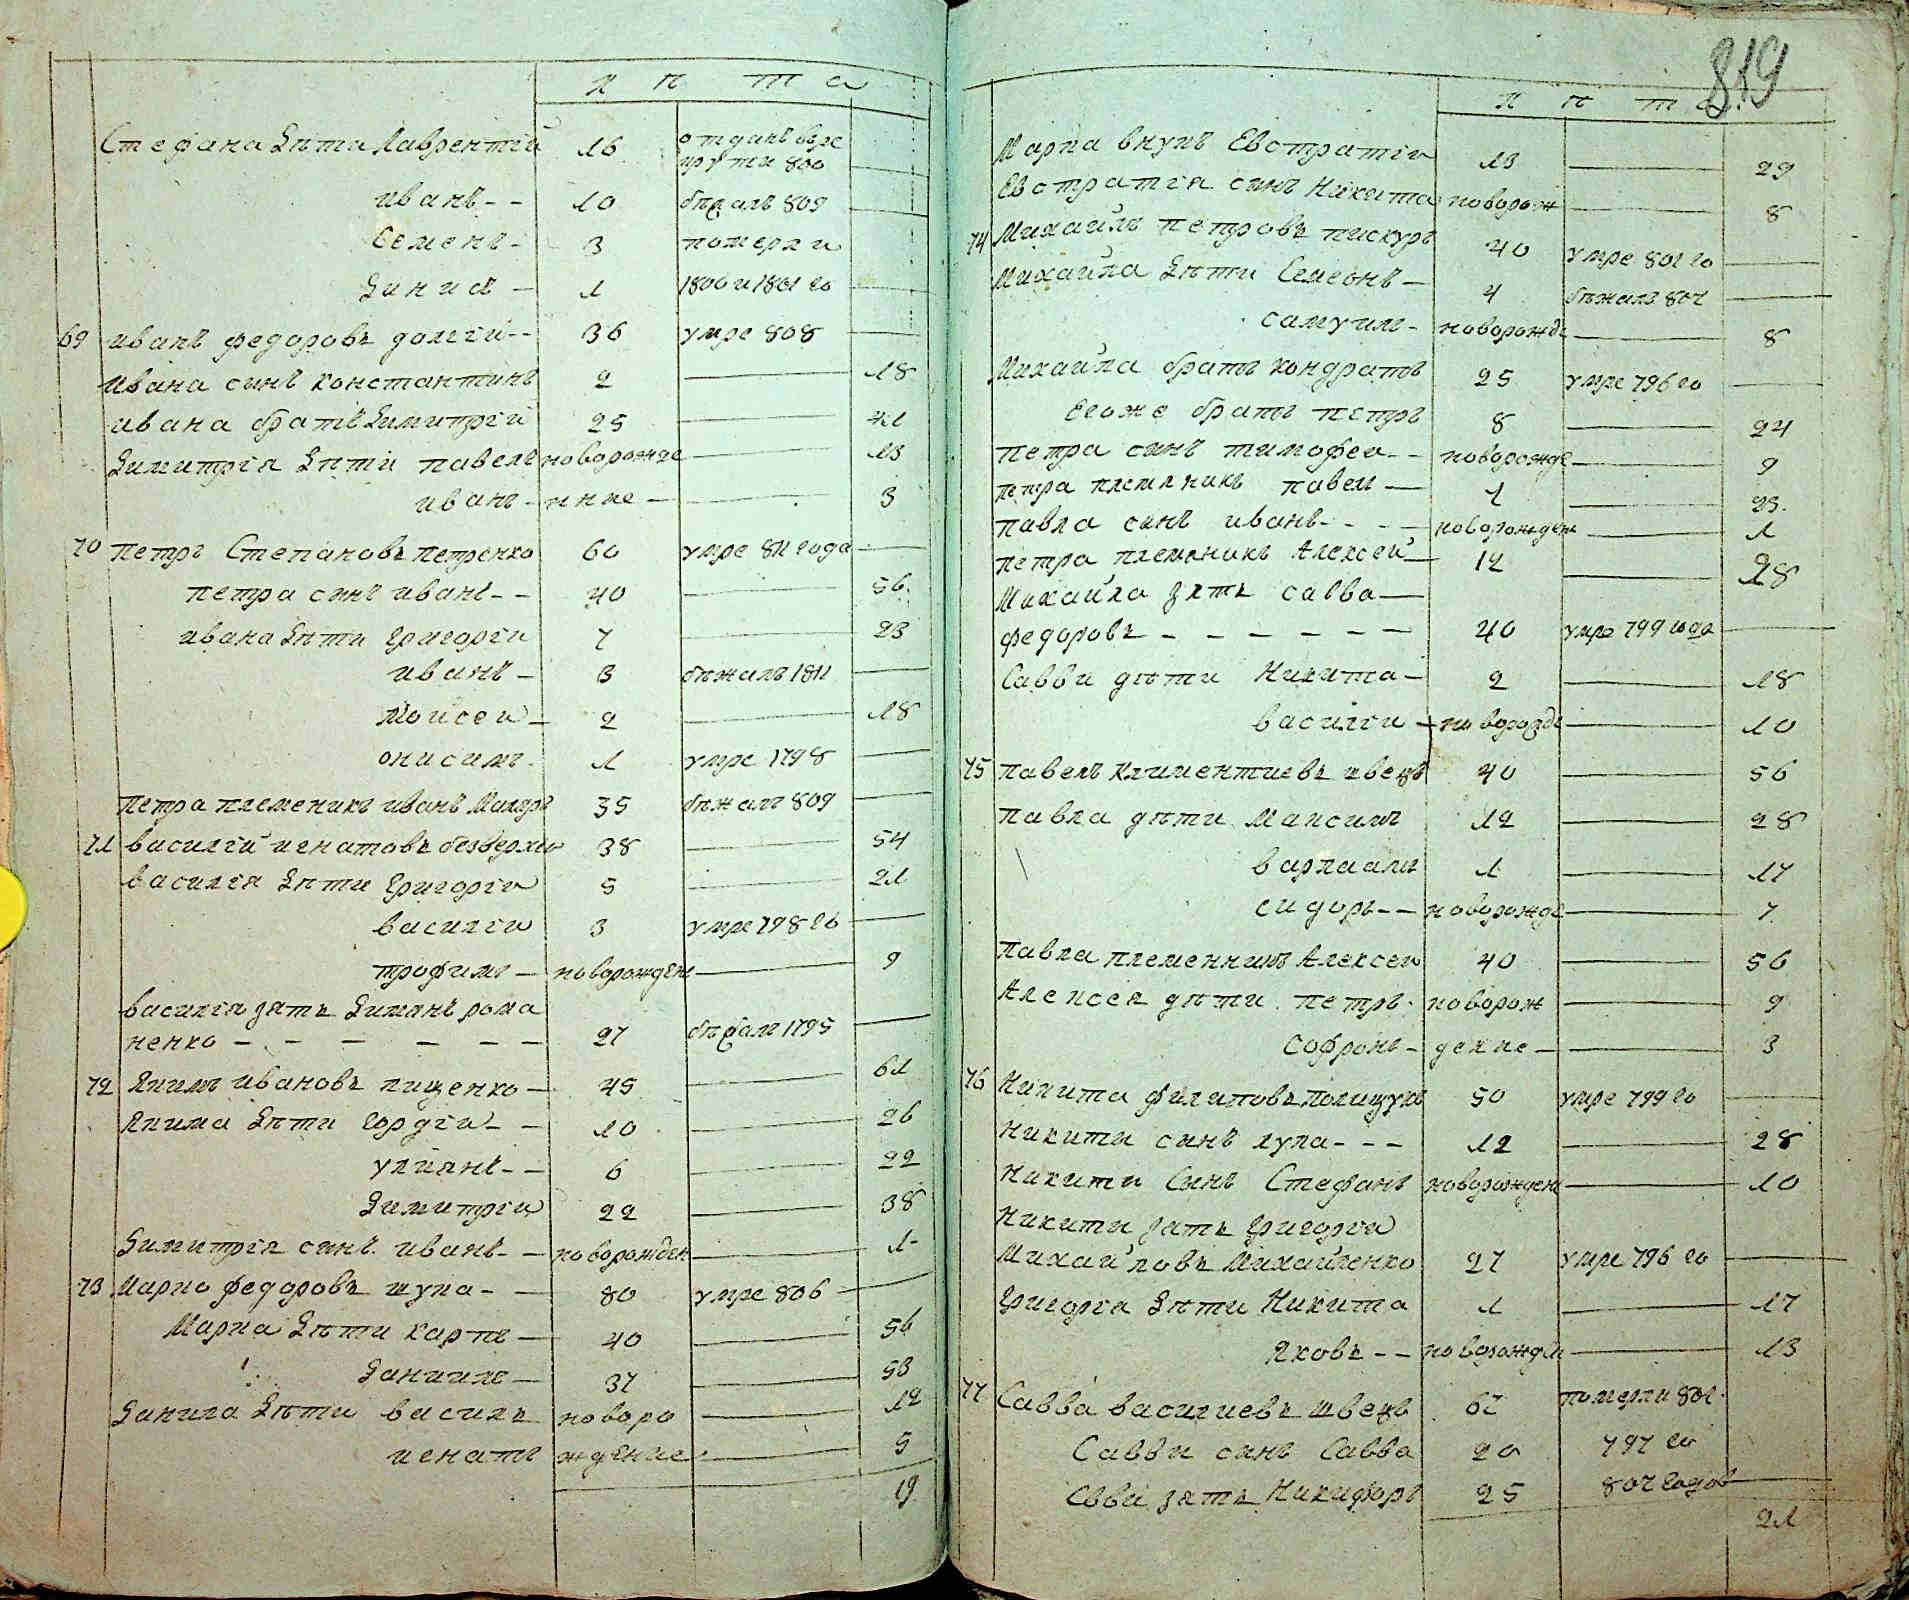 л ѣ т а
Стефана дѣти Лаврентій 16 отданъ въре
крути 800
иванъ -- 10 бѣжалъ 809
Семенъ - 3 померли
Данило - 1 1800 и 1801 го
69 иванъ федоровъ долгій -- 36 умре 808
ивана синъ константинъ 2 — 18
ивана братъ Димитрій 25 — 41
Димитрія дѣти павелъ новорожде — 13
иванъ - нние — 3
70 петръ Степановъ петренко 60 умре 811 года
петра синъ иванъ -- 40 — 56
ивана дѣти григорги 7 — 23
иванъ - 3 бѣжалъ 1811
Мойсеи - 2 — 18
онисимъ 1 умре 1798
петра племеникъ иванъ 35 бѣжалъ 809
71 василги игнатовъ безверхи 38 — 54
василгя дѣти григорги 5 — 21
василги 3 умре 798 го
трофимъ - новорожден — 9
василгя зять Димянъ рома
ненко - - - - - - 27 бѣжалъ 1795
72 Якимъ ивановъ пищенко - 45 — 61
Якима дѣти гордги - - 10 — 26
улиянъ -- 6 — 22
Димитрги 22 — 38
Димитргя синъ иванъ - - новорожден — 1
73 Марко федоровъ щупа - - 80 умре 806
Марка дѣти карпъ - 40 — 56
Даниило - 37 — 53
Данила дѣти василь новоро — 12
игнатъ ждение — 5
19
819
л ѣ т а
Марка внукъ Евстратги 13 — 29
Евстратгя синъ Никита новорож — 8
74 Михайлъ петровъ пискуръ 40 умре 801 го
Михайла дѣти Семеонъ - 4 бѣжалъ 807
самуилъ - новорожде — 8
Михайла братъ кондратъ 25 умре 796 го
Егоже братъ петръ 8 — 24
петра синъ тимофеи -- новорожде — 9
петра племяникъ павел — 7 — 23
павла синъ иванъ - - - - новорожден — 1
петра племяникъ Алексей - 12 — 28
Михайла зять савва —
федоровъ - - - - - - 40 умре 799 года
Савви дѣти Никита - 2 — 18
василги - новорозде — 10
75 павелъ климентиевъ швецъ 40 — 56
павла дѣти Максимъ 12 — 28
варлаамъ 1 — 17
сидоръ -- новорожде — 7
павла племенникъ Алексеи 40 — 56
Алексея дѣти петръ новорож — 9
Софронъ - дение — 3
76 Никита филиповъ полищукъ 50 умре 799 го
Никити синъ лука - - - 12 — 28
Никити Синъ Стефанъ новорожден — 10
Никити зять григорги
Михайловъ Михайленко 27 умре 796 го
григоргя дѣти Никита 1 — 17
Яковъ -- новорожден — 13
77 Савва василиевъ швецъ 67 померли 801
Савви синъ Савва 20 797 го
Свви зять Никифоръ 25 807 годов
21